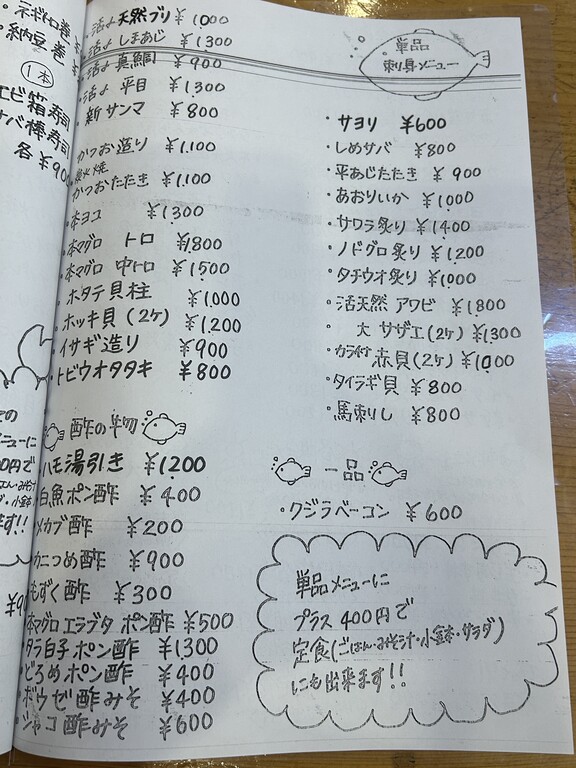 ・ネギトロ巻 ¥
・納豆巻 ¥
①本
エビ箱寿司
サバ棒寿司
各 ¥900
メニューに
00円で
ます!!
・活〆天然ブリ ¥1000
・活〆しまあじ ¥1300
・活〆真鯛 ¥900
・活〆平目 ¥1300
・新サンマ ¥800
かつお造り ¥1,100
炭火焼
かつおたたき ¥1,100
・本ヨコ ¥1300
・本マグロ トロ ¥1800
・本マグロ 中トロ ¥1500
・ホタテ貝柱 ¥1000
・ホッキ貝(2ケ) ¥1,200
・イサギ造り ¥900
・トビウオタタキ ¥800
酢の物
・ハモ湯引き ¥1200
白魚ポン酢 ¥400
メカブ酢 ¥200
カニつめ酢 ¥900
もずく酢 ¥300
本マグロエラブタポン酢 ¥500
タラ白子ポン酢 ¥1300
どろめポン酢 ¥400
ボウゼ酢みそ ¥400
・シャコ酢みそ ¥600
単品
刺身メニュー
・サヨリ ¥600
・しめサバ ¥800
・平あじたたき ¥900
・あおりいか ¥1000
・サワラ炙り ¥1400
・ノドグロ炙り ¥1200
・タチウオ炙り ¥1000
・活天然アワビ ¥1800
・大サザエ(2ケ) ¥1300
・カラ付赤貝(2ケ) ¥1000
・タイラギ貝 ¥800
・馬刺し ¥800
一品
・クジラベーコン ¥600
単品メニューに
プラス400円で
定食(ごはん・みそ汁・小鉢・サラダ)
にも出来ます!!